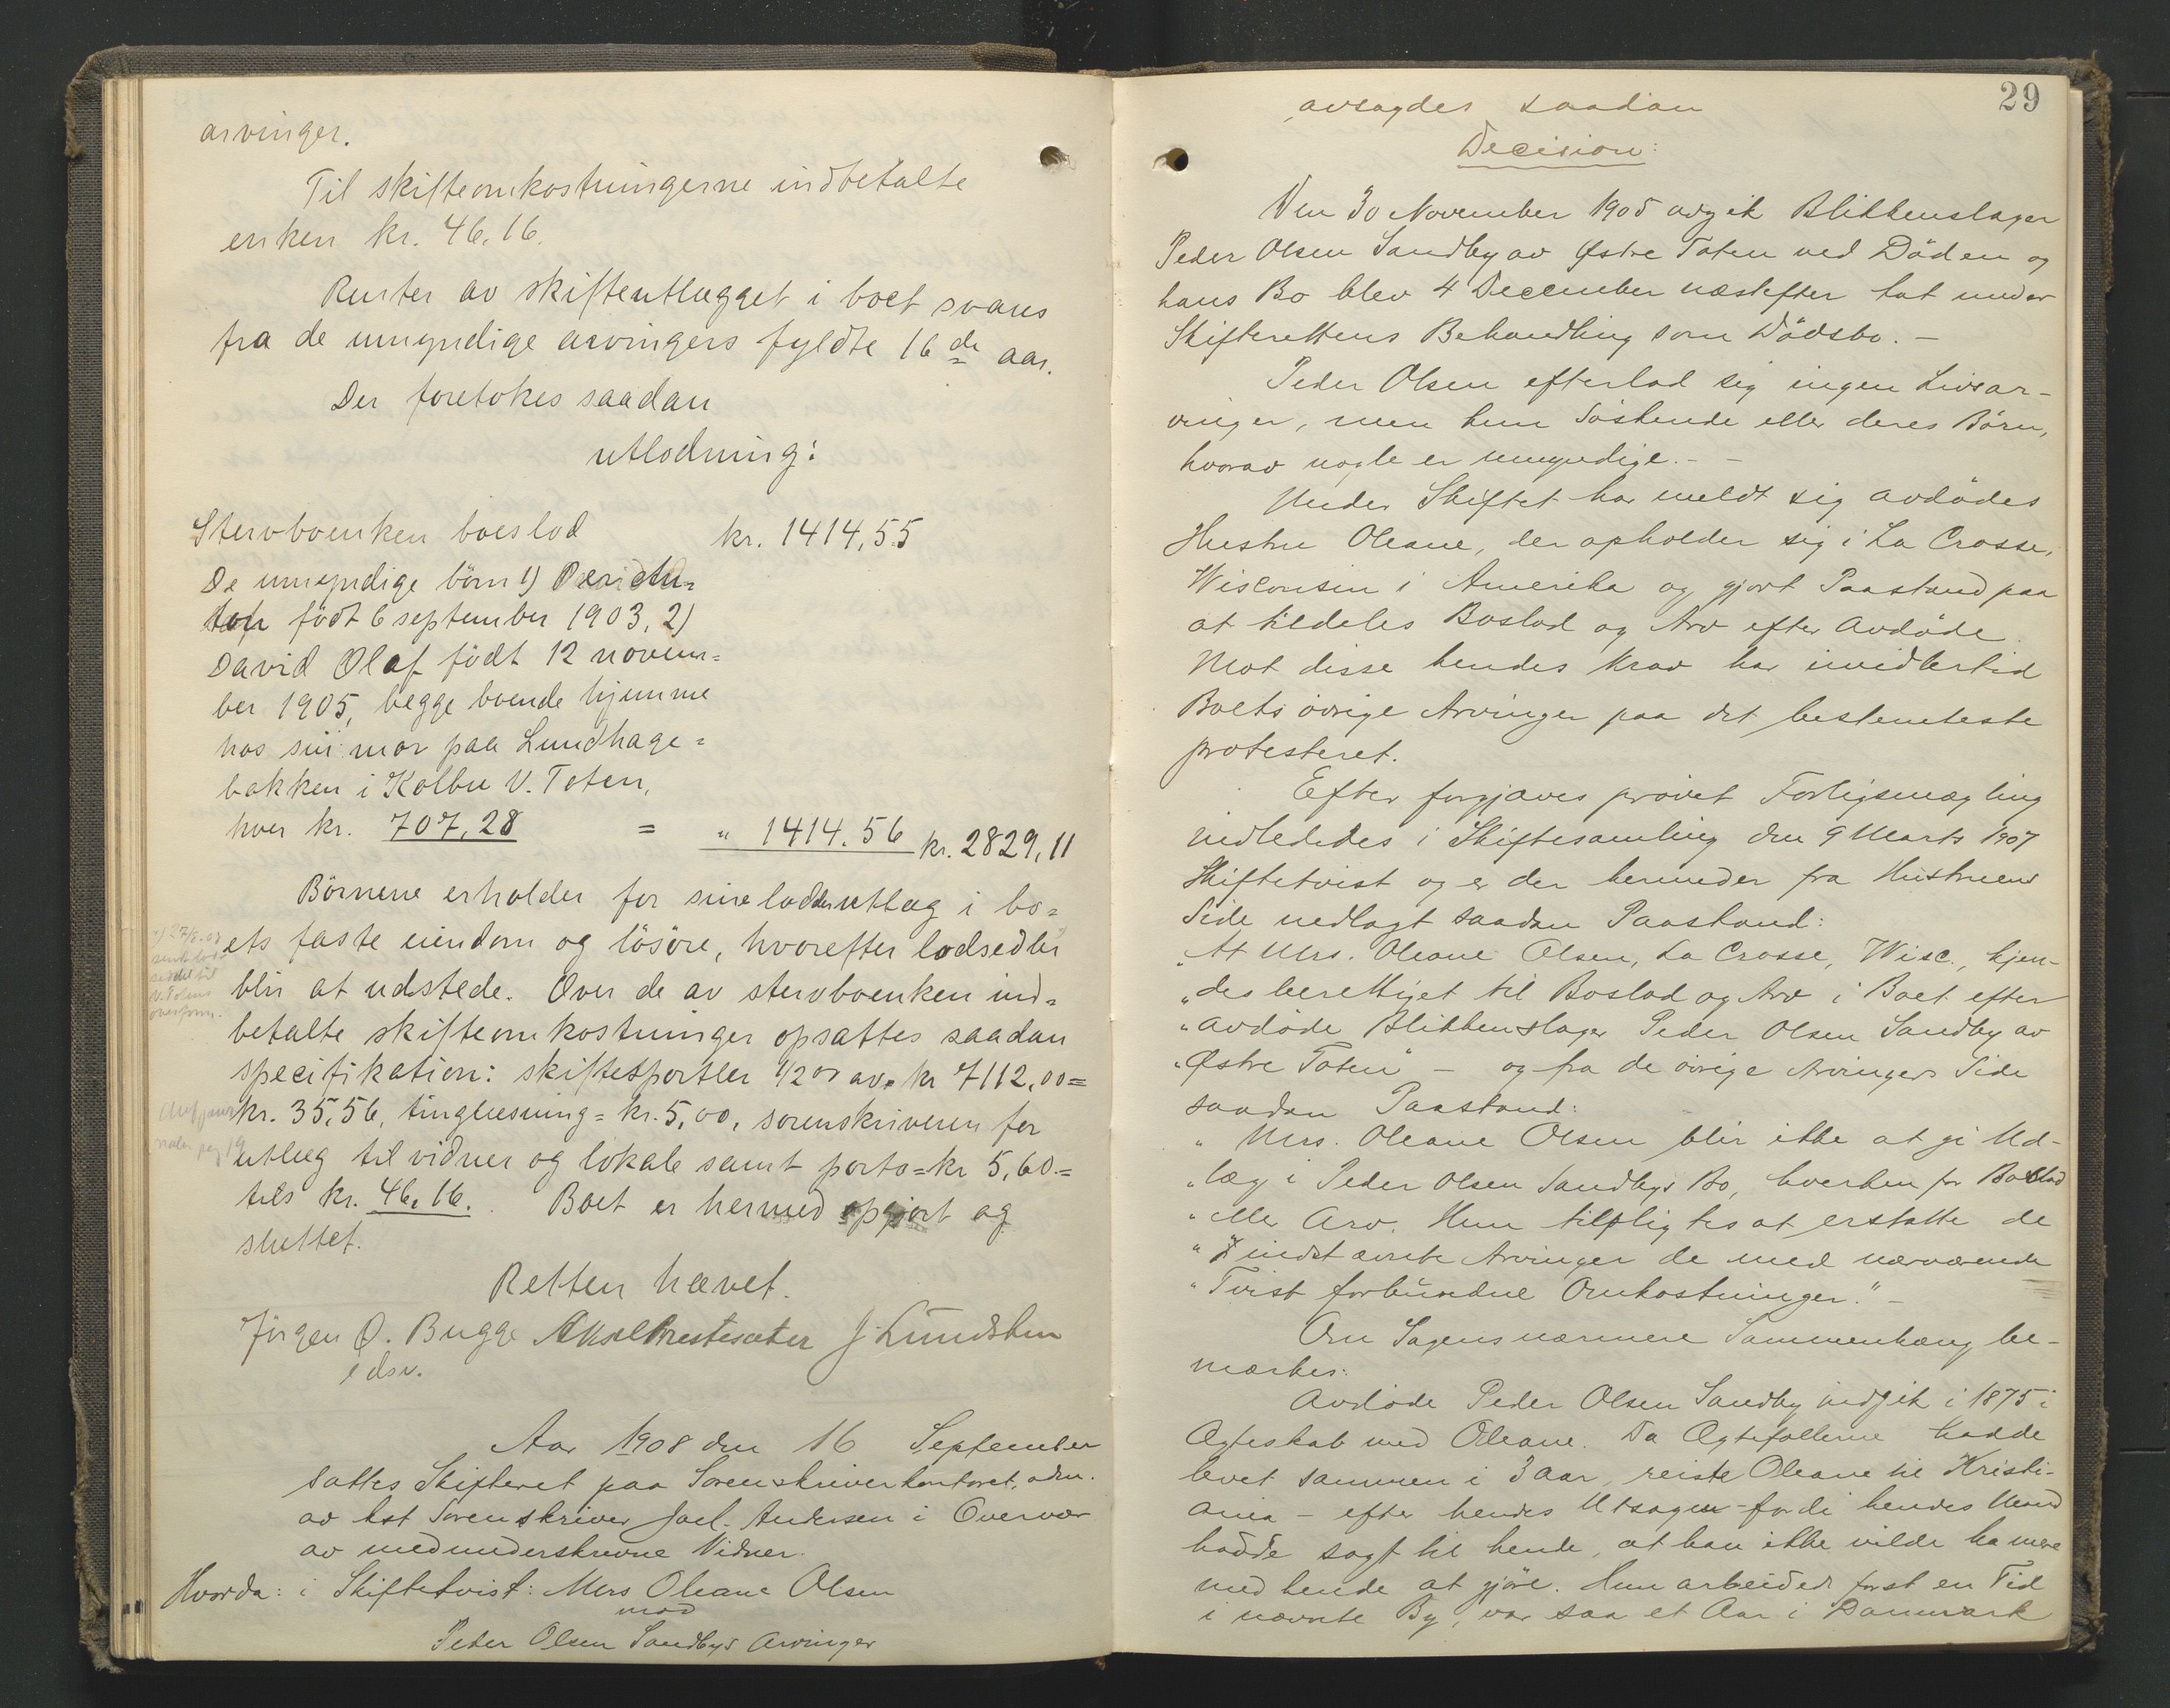 arvinger.
Til skifteomkostningerne indbetalte
enken kr. 46.16.
Renter av skifteutlægget i boet svares
fra de umyndige arvingers fyldte 16de aar.
Der foretokes saadan
utlodning:
Stervboenken boeslod kr. 1414,55
De umyndige børn 1)
født 6 september 1903, 2)
David Olaf født 12 novem=
ber 1905, begge boende hjemme
hos sin mor paa Lundhage=
bakken i Kolbu V. Toten,
hver kr. 707,28 = " 1414.56 kr. 2829,11
Børnene erholder for sine lodder utlæg i bo=
ets faste eiendom og løsøre, hvorefter lodsedler
blir at udstede. Over de av stervboenken ind=
betalte skifteomkostninger opsattes saadan
specifikation: skiftesportler 1/2 av kr 7112,00=
kr. 35,56, tinglæsning = kr. 5,00, sorenskriveren for
utlæg til vidner og lokale samt porto = kr 5,60.=
tils kr. 46,16. Boet er hermed opgjort og
sluttet.
Retten hævet.
Jørgen Ø. Bugge Aksel Prestesæter J. Lundsten
edsv.
Aar 1908 den 16 September
sattes Skifteret paa Sorenskriverkontoret, adm.
av kst Sorenskriver Joel. Andersen i Overvær
av medunderskrevne Vidner.
Hvorda: i Skiftetvist: Mrs Oleane Olsen
mod
Peder Olsen Sandbys Arvinger
29
avsagdes saadan
Decision:
Den 30 November 1905 avgik Blikkenslager
Peder Olsen Sandby av Østre Toten ved Döden og
hans Bo blev 4 December næstefter tat under
Skifterettens Behandling som Dödsbo. –
Peder Olsen efterlod sig ingen Livsar-
vinger, men kun Söskende eller deres Börn,
hvorav nogle er umyndige. – –
Under Skiftet har meldt sig avdödes
Hustru Oleane, der opholder sig i La Crosse,
Wisconsin i Amerika og gjort Paastand paa
at tildeles Boslod og Arv efter Avdöde.
Mot disse hendes Krav har imidlertid
Boets övrige Arvinger paa det bestemteste
protesteret.
Efter forgjæves prövet Forligsmægling
indlededes i Skiftesamling den 9 Marts 1907
Skiftetvist og er der herunder fra Hustruens
Side nedlagt saadan Paastand:
„At Mrs. Oleane Olsen, La Crosse, Wisc., kjen-
„des berettiget til Boslod og Arv i Boet efter
„avdöde Blikkenslager Peder Olsen Sandby av
„Østre Toten" – og fra de övrige Arvingers Side
saadan Paastand:
„Mrs. Oleane Olsen blir ikke at gi Ud-
„læg i Peder Olsen Sandbys Bo, hverken for Boslod
„eller Arv. Hun tilpligtes at erstatte de
„indstævnte Arvinger de med nærværende
„Tvist forbundne Omkostninger." –
Om Sagens nærmere Sammenhæng be-
mærkes:
Avdöde Peder Olsen Sandby indgik i 1875 i
Ægteskab med Oleane. Da Ægtefællerne hadde
levet sammen i 3 Aar, reiste Oleane til Kristi-
ania – efter hendes Utsagn – fordi hendes Mand
hadde sagt til hende, at han ikke vilde ha mere
med hende at gjöre. Hun arbeidet først en Tid
i nævnte By, var saa et Aar i Danmark